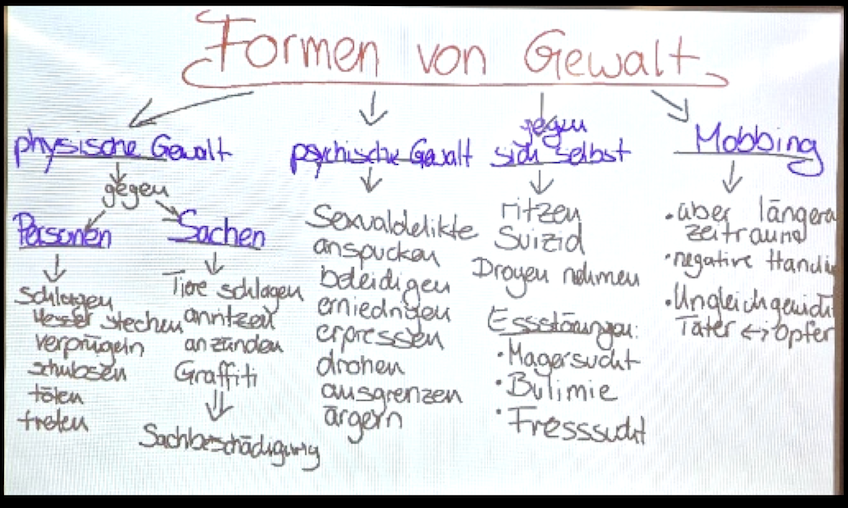 Formen von Gewalt
physische Gewalt
gegen
Personen
schlagen
Messer stechen
verprügeln
schubsen
töten
treten
Sachen
Tiere schlagen
anritzen
anzünden
Graffiti
Sachbeschädigung
psychische Gewalt
Sexualdelikte
anspucken
beleidigen
erniedrigen
erpressen
drohen
ausgrenzen
ärgern
gegen
sich selbst
ritzen
Suizid
Drogen nehmen
Essstörungen:
• Magersucht
• Bulimie
• Fresssucht
Mobbing
• über längera
zeitraum
• negative Handlu
• Ungleichgewicht
Täter ↔ Opfer